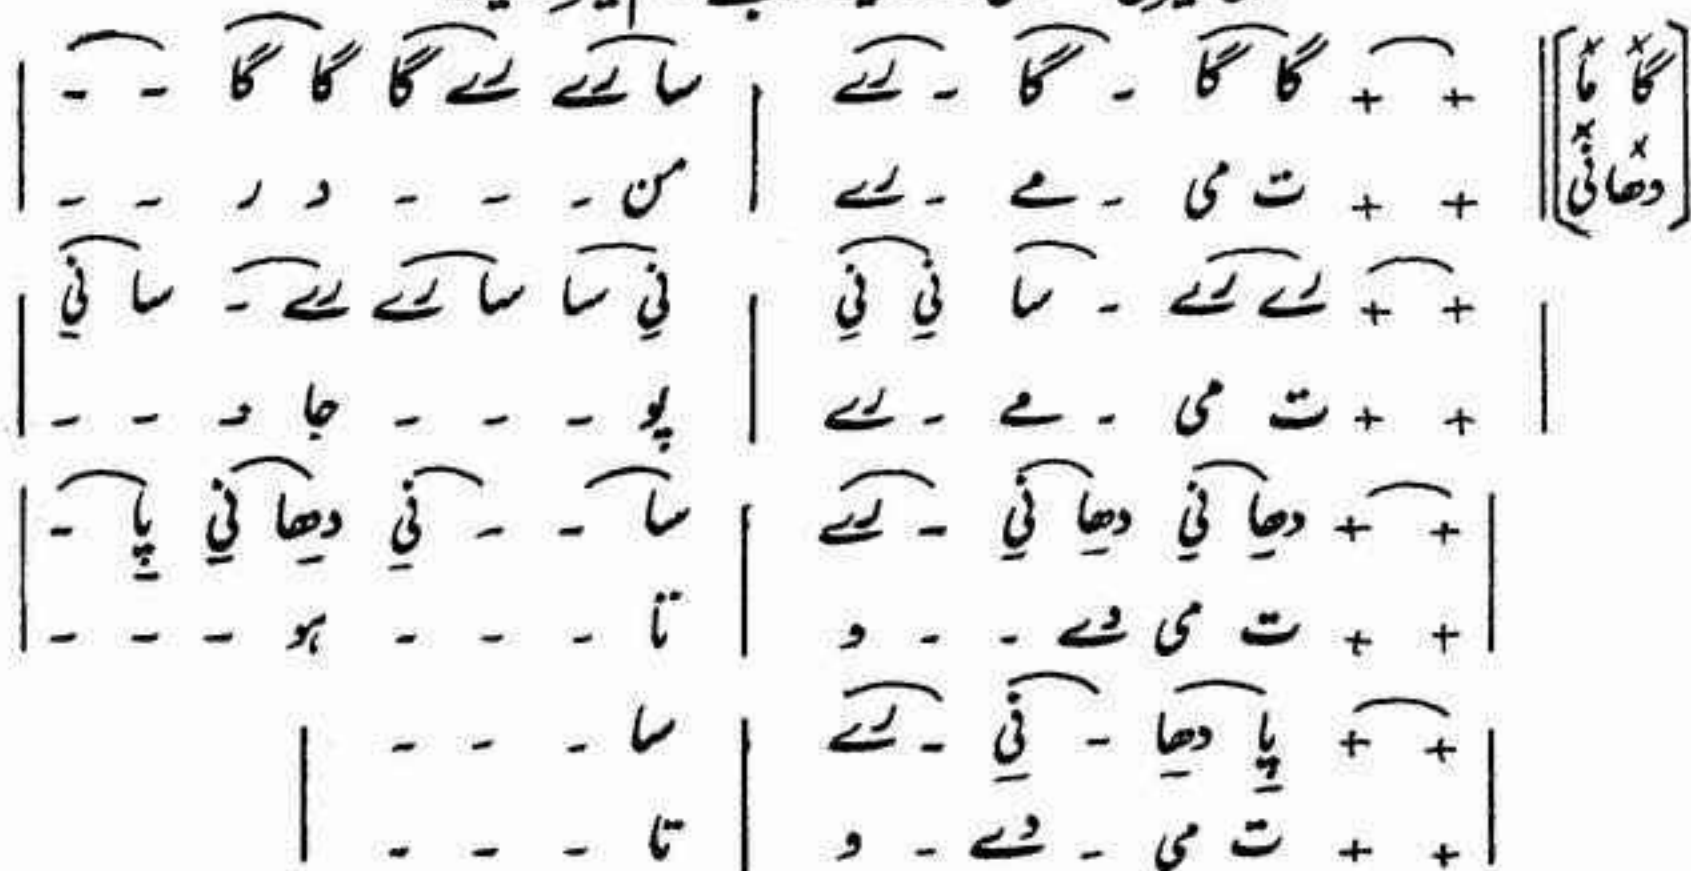 [گا ما] || + + گا گا - گا - رے | سا رے رے گا گا گا - - |
[دھا نی] || + + ت می - مے - رے | من - - - د ر - - |
| + + رے رے - سا نِی نِی | نِی سا سا رے رے - سا نِی |
| + + ت می - مے - رے | پو - - - جا د - - |
| + + دھِا نِی دھِا نِی - رے | سا - - نِی دھِا نِی پِا - |
| + + ت می دے - - و | تا - - - ہو - - - |
| + + پِا دھِا - نِی - رے | سا - - - |
| + + ت می - دے - و | تا - - - |